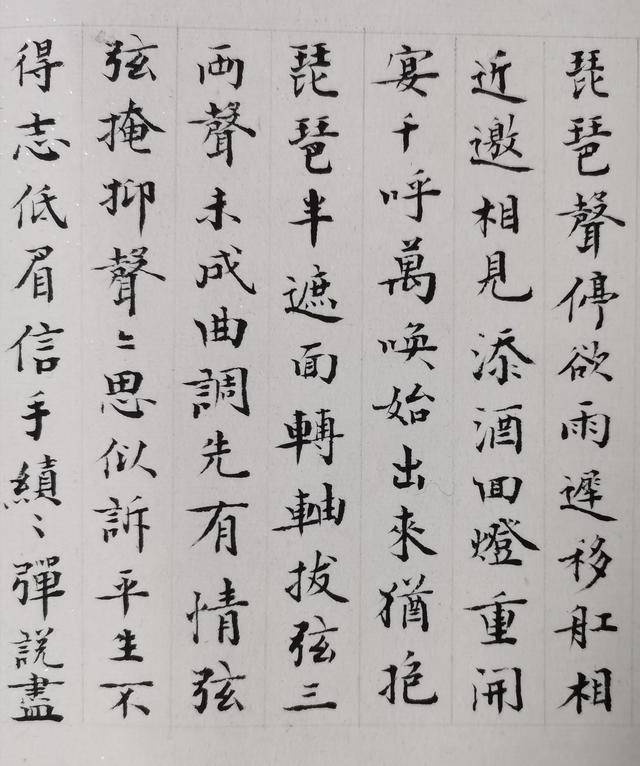 琵琶聲停欲雨遲移舡相
近邀相見添酒回燈重開
宴千呼萬喚始出來猶抱
琵琶半遮面轉軸拔弦三
兩聲未成曲調先有情弦
弦掩抑聲〻思似訴平生不
得志低眉信手續〻彈說盡